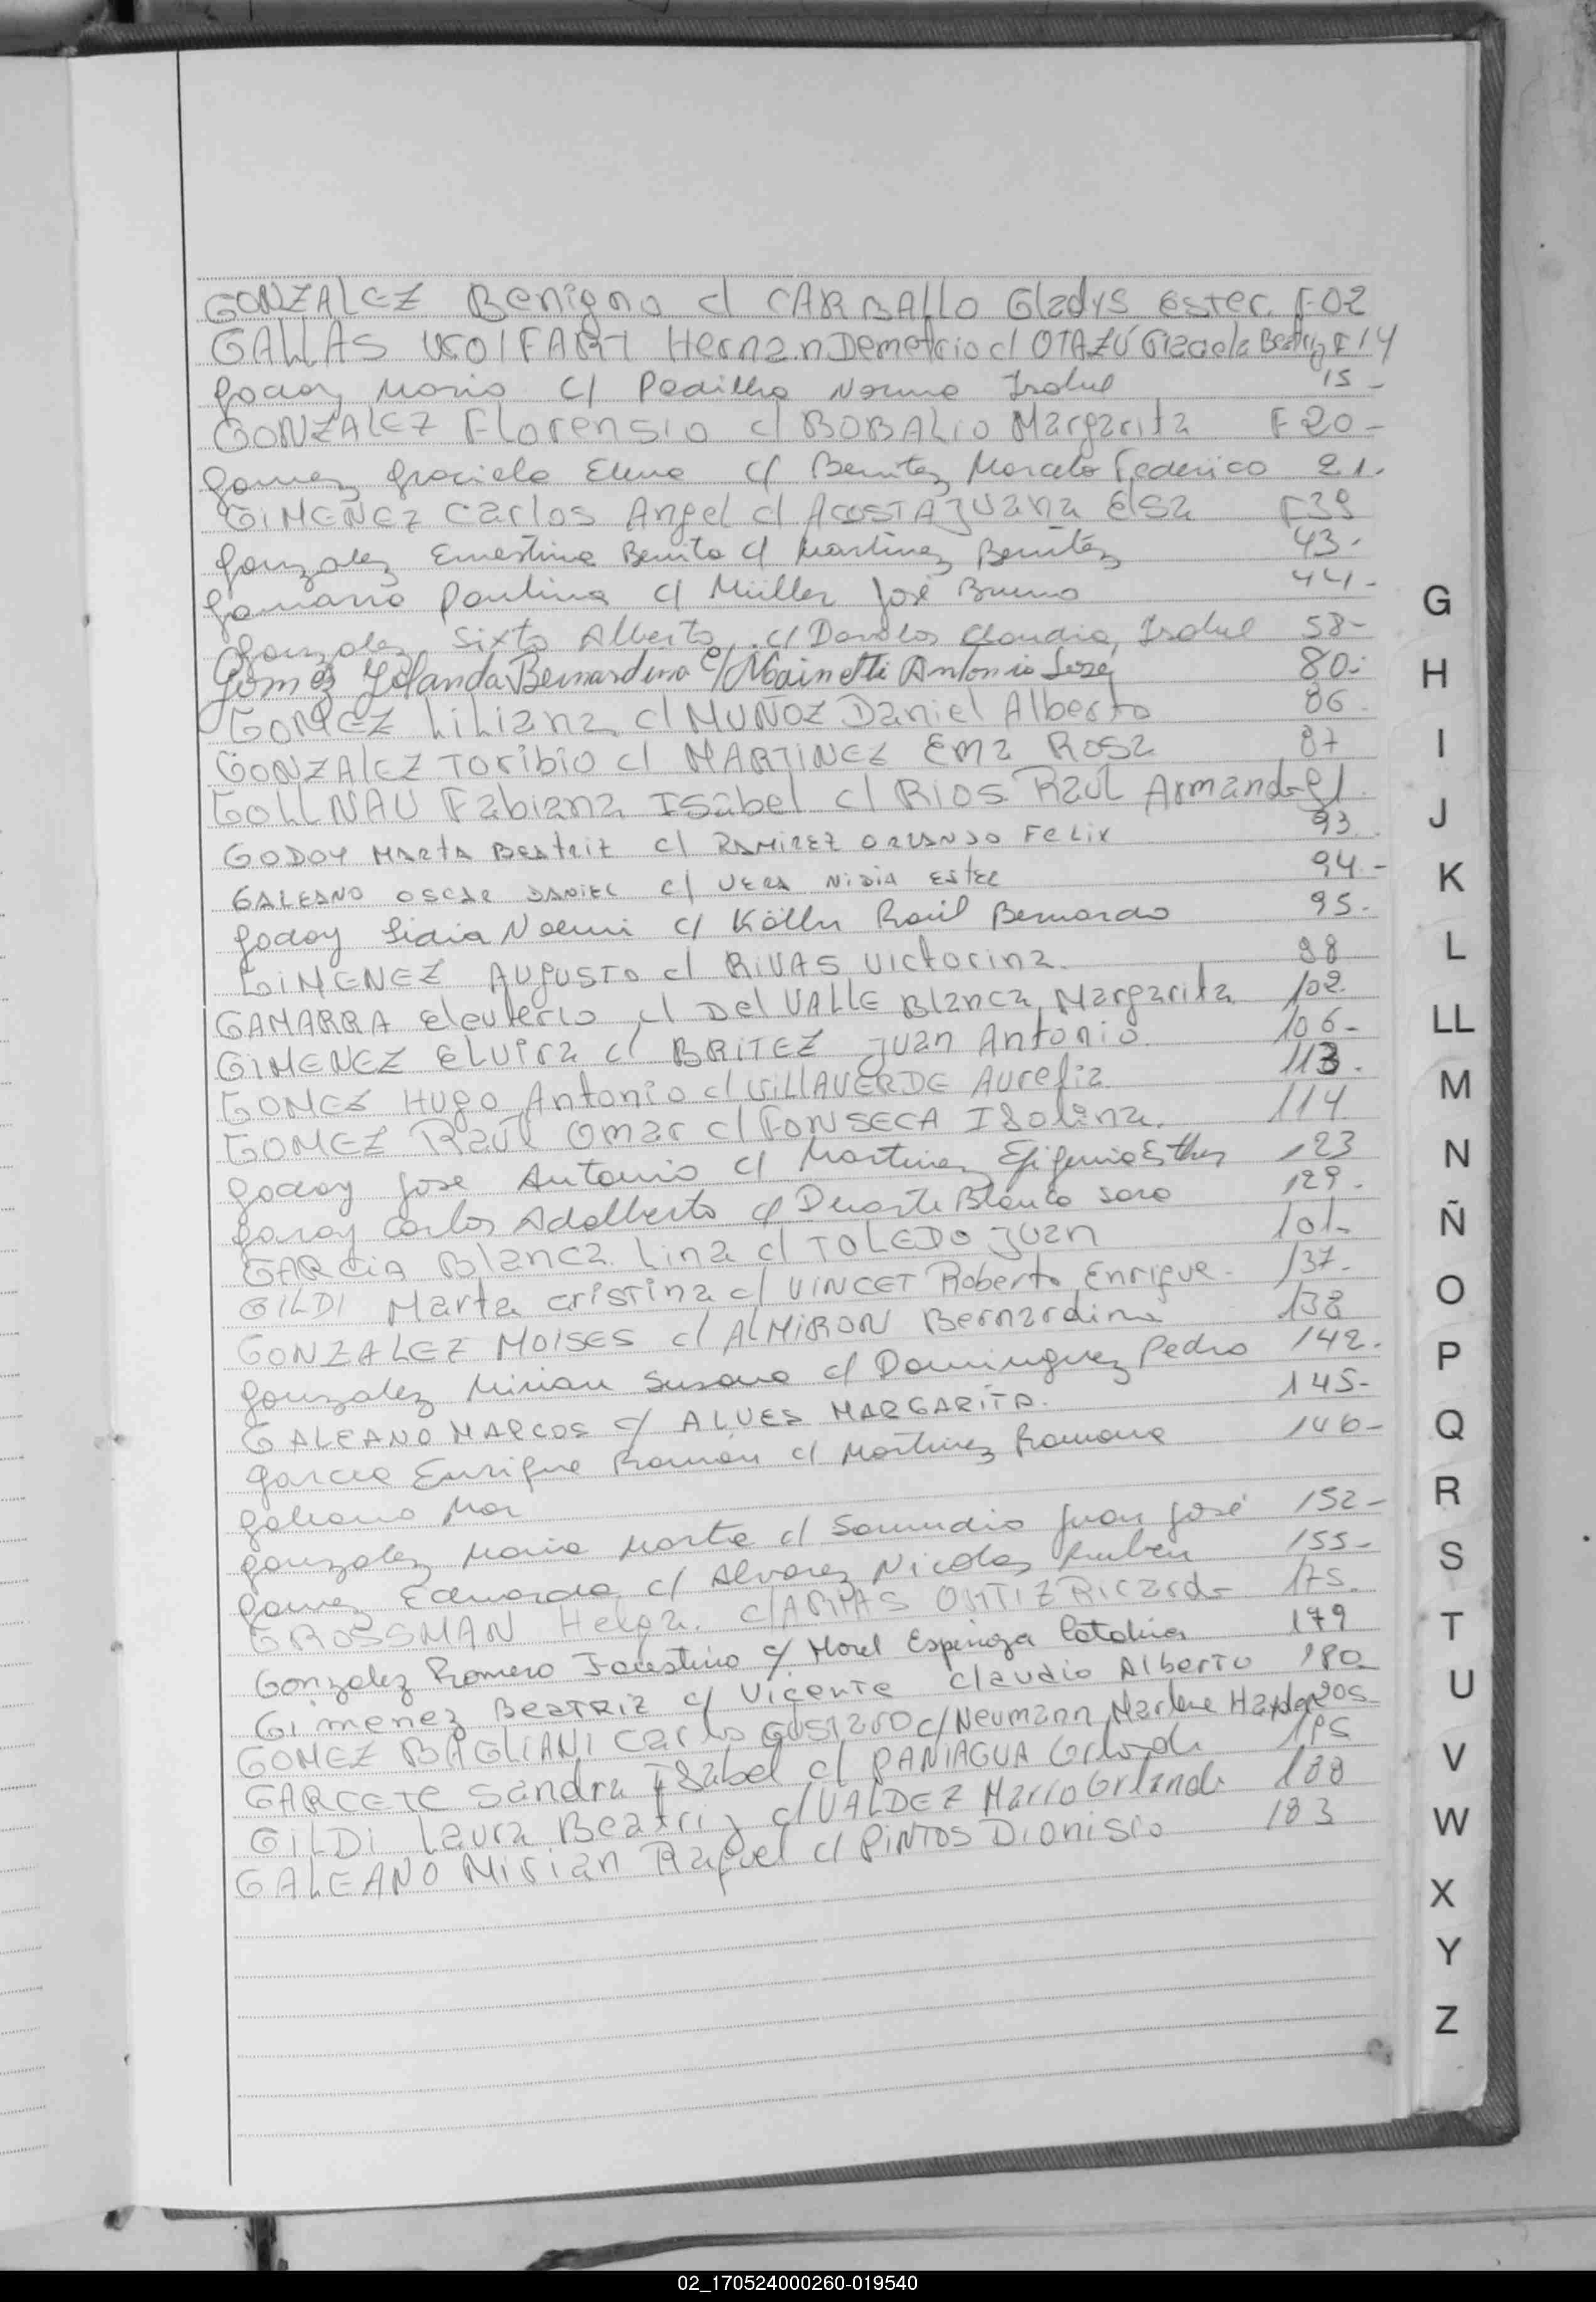 GONZALEZ Benigno c/ CARBALLO Gladys Ester. F-02
GALLAS Hernan Demetrio c/ OTAZÚ Graciela Beatriz F 14
Godoy Mario c/ Padilha Norma Isabel 15-
GONZALEZ Florensio c/ BOBALIO Margarita F 20-
Gomez Graciela Elena c/ Benitez Marcelo Federico 21.
GIMENEZ Carlos Angel c/ ACOSTA JUANA ELSA F39
Gonzalez Ernestina Benita c/ Martinez Benitez 43.
Gamarra Paulina c/ Müller José Bruno 44-
Gonzalez Sixto Alberto c/ Davalos Claudia Isabel 58-
Gómez Yolanda Bernardina c/ Mainetti Antonio José 80.
GOMEZ LiLiana c/ MUÑOZ Daniel Alberto 86.
GONZALEZ TORIBIO c/ MARTINEZ Ema Rosa 87
GOLLNAU Fabiana ISabel c/ RIOS RAUL Armando 91
GODOY MARTA BEATRIZ c/ RAMIREZ ORLANDO FELIX 93.
GALEANO OSCAR DANIEL c/ VERA NIDIA ESTER 94.-
Godoy Lidia Noemi c/ Kölln Raúl Bernardo 95.
GIMENEZ AUGUSTO c/ RIVAS Victorina. 98
GAMARRA eleuterio c/ Del VALLE Blanca Margarita 102.
GIMENEZ ELVIRA c/ BRITEZ Juan Antonio. 106-
GOMEZ Hugo Antonio c/ VILLAVERDE Aurelia 113.
GOMEZ RAUL Omar c/ FONSECA ISolina. 114
Godoy Jose Antonio c/ Martinez Efigenia Esther 123
Garay Carlos Adalberto c/ Duarte Blanca Sara 129.
GARCIA Blanca Lina c/ TOLEDO JUAN 101-
GILDI Marta Cristina c/ VINCET Roberto Enrique. 137.
GONZALEZ MOISES c/ ALMIRON Bernardina 138
Gonzalez Mirian Susana c/ Dominguez Pedro 142.
GALEANO MARCOS c/ ALVES MARGARITA. 145-
Garcia Enrique Ramón c/ Martinez Ramona 146-
Galeano Mar
Gonzalez Maria Marta c/ Samudio Juan José 152-
Gomez Eduarda c/ Alvarez Nicolas Ruben 155-
GROSSMAN Helga. c/ ARMAS ORTIZ Ricardo 175.
Gonzalez Romero Faustino c/ Morel Espinoza Catalina 179
Gimenez BEATRIZ c/ Vicente Claudio Alberto 180
GOMEZ BAGLIANI Carlos GUSTAVO c/ Neumann Marlene 205
GARCETE Sandra ISabel c/ PANIAGUA Orlando 195
GILDI Laura Beatriz c/ VALDEZ Mario Orlando 188
GALEANO Mirian Raquel c/ PINTOS Dionisio 183
G
H
I
J
K
L
LL
M
N
Ñ
O
P
Q
R
S
T
U
V
W
X
Y
Z
02_170524000260-019540